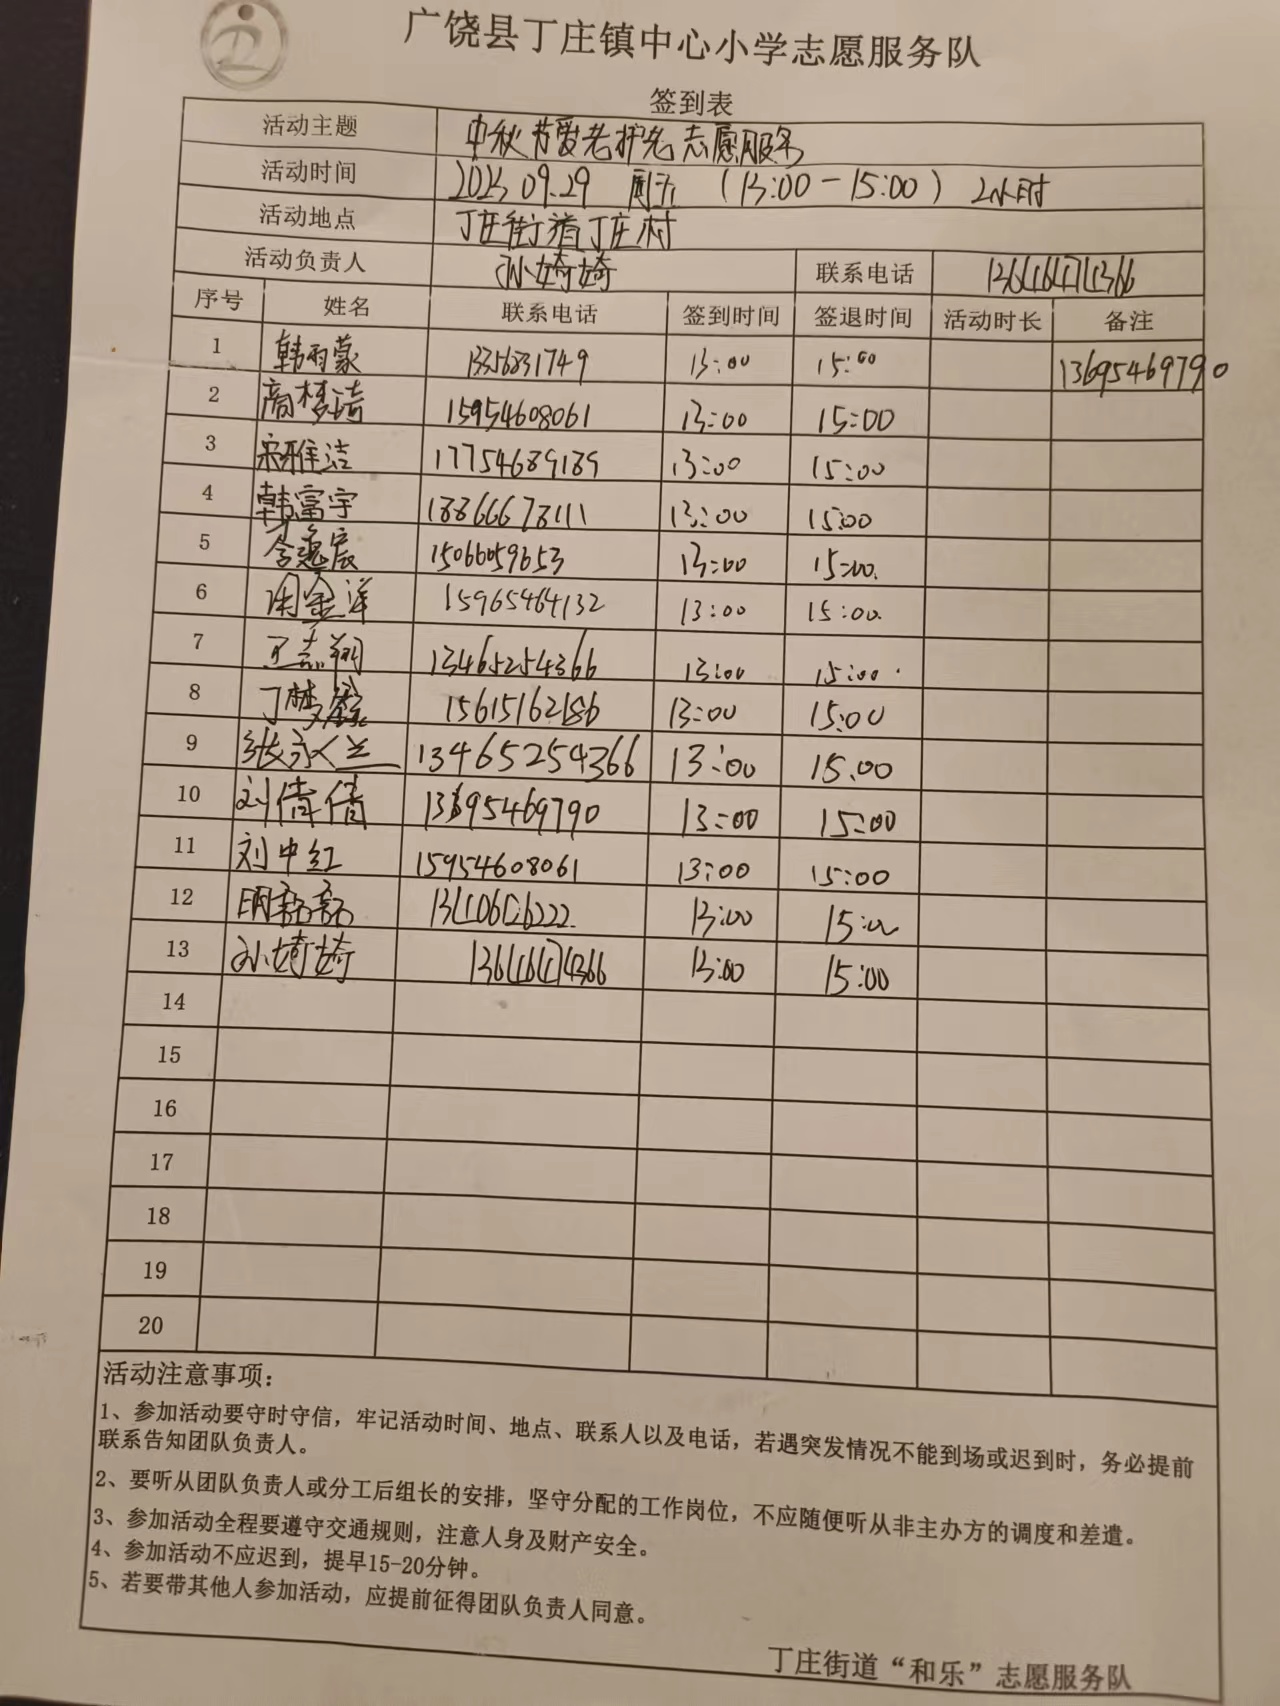 广饶县丁庄镇中心小学志愿服务队
签到表
活动主题 中秋节爱老护老志愿服务
活动时间 2023.09.29 周五 (13:00-15:00) 2小时
活动地点 丁庄街道丁庄村
活动负责人 孙婍婍 联系电话 13646474366
序号 姓名 联系电话 签到时间 签退时间 活动时长 备注
1 韩雨蒙 13356831749 13:00 15:00 13695469790
2 高梦琦 15954608061 13:00 15:00
3 宋雅洁 17754689189 13:00 15:00
4 韩富宇 18866678111 13:00 15:00
5 李逸宸 15066059653 13:00 15:00
6 周金洋 15965464132 13:00 15:00
7 王志翔 13465254366 13:00 15:00
8 丁梦 13:00 15:00
9 张永兰 13465254366 13:00 15.00
10 刘倩倩 13695469790 13:00 15:00
11 刘中红 15954608061 13:00 15:00
12 明 13:00 15:00
13 孙婍婍 13646474366 13:00 15:00
14
15
16
17
18
19
20
活动注意事项：
1、参加活动要守时守信，牢记活动时间、地点、联系人以及电话，若遇突发情况不能到场或迟到时，务必提前
联系告知团队负责人。
2、要听从团队负责人或分工后组长的安排，坚守分配的工作岗位，不应随便听从非主办方的调度和差遣。
3、参加活动全程要遵守交通规则，注意人身及财产安全。
4、参加活动不应迟到，提早15-20分钟。
5、若要带其他人参加活动，应提前征得团队负责人同意。
丁庄街道“和乐”志愿服务队